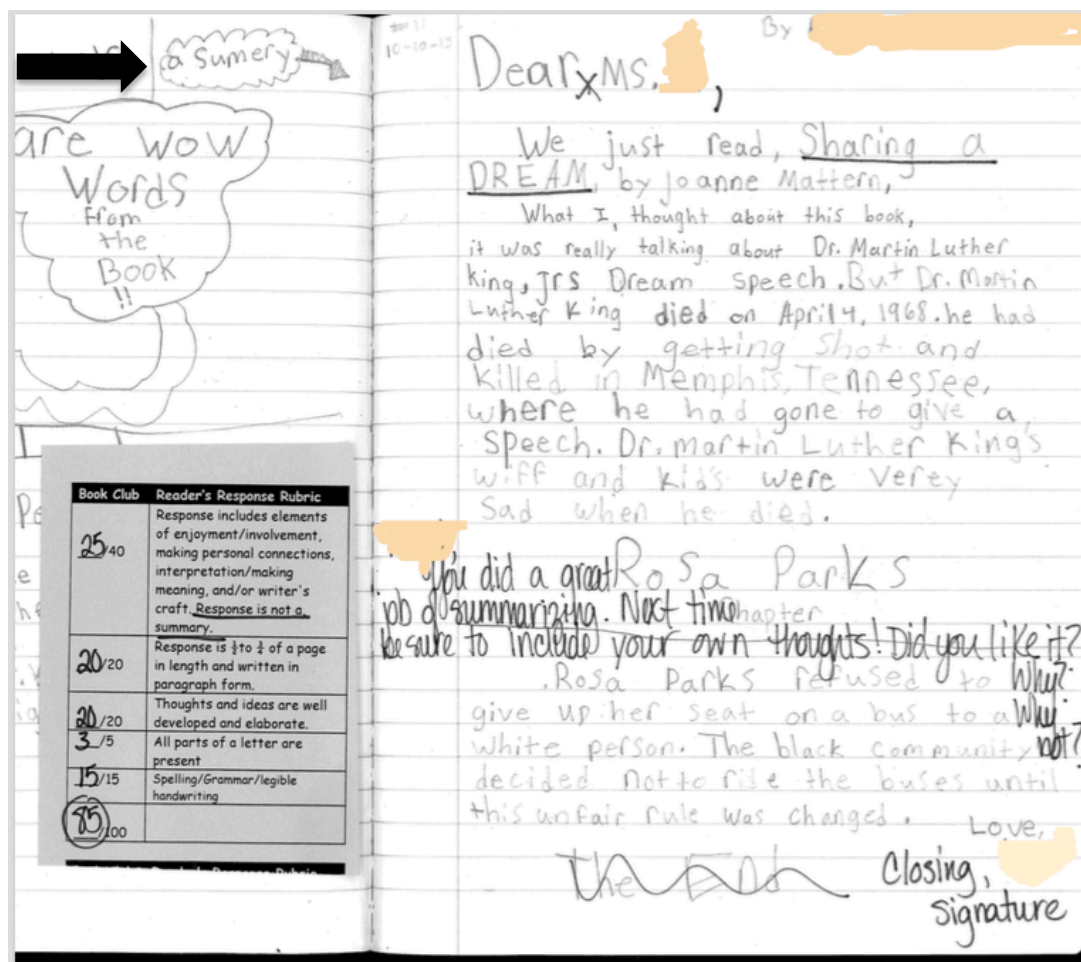 a Sumery
are WOW
Words
From
the
Book
!!
Book Club Reader's Response Rubric
25/40 Response includes elements
of enjoyment/involvement,
making personal connections,
interpretation/making
meaning, and/or writer's
craft. Response is not a
summary.
20/20 Response is ½ to ¾ of a page
in length and written in
paragraph form.
20/20 Thoughts and ideas are well
developed and elaborate.
3/5 All parts of a letter are
present
15/15 Spelling/Grammar/legible
handwriting
85/100
10-10-13
By
Dear Ms. ,
We just read, Sharing a
DREAM, by Joanne Mattern,
What I, thought about this book,
it was really talking about Dr. Martin Luther
king, Jrs Dream speech. But Dr. Martin
Luther King died on April 4, 1968. he had
died by getting Shot and
killed in Memphis, Tennessee,
where he had gone to give a
Speech. Dr. martin Luther King's
wiff and kid's were Verey
Sad when he died.
Rosa Parks
chapter
You did a great
job of summarizing. Next time
be sure to include your own thoughts! Did you like it?
Why?
Why
not?
Rosa Parks refused to
give up her seat on a bus to a
white person. The black community
decided not to ride the buses until
this unfair rule was changed.
Love,
The End
Closing,
signature